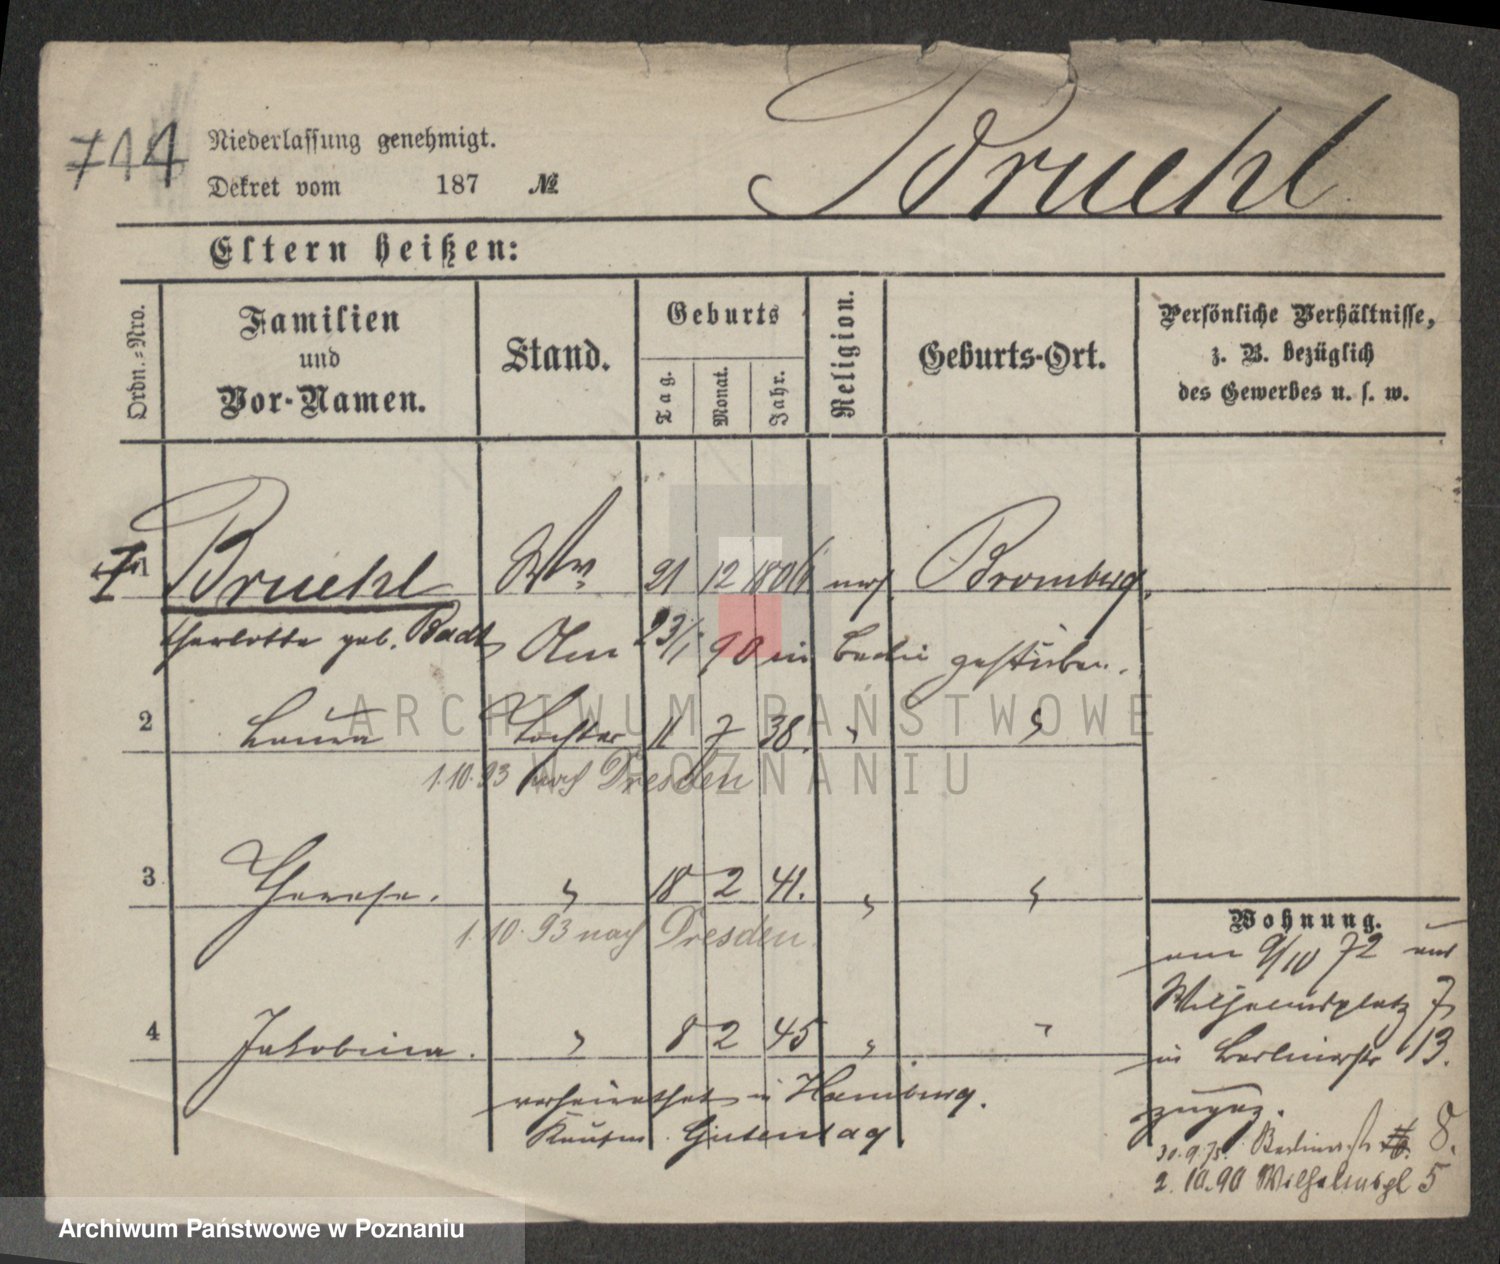 714
Niederlassung genehmigt.
Dekret vom 187 №
Bruehl
Eltern heißen:
Ordn.-Nro.
Familien
und
Vor-Namen.
Stand.
Geburts
Tag.
Monat.
Jahr.
Religion.
Geburts-Ort.
Persönliche Verhältnisse,
z. B. bezüglich
des Gewerbes u. s. w.
1 Bruehl Wwe 21 12 1806 mos. Bromberg.
Charlotte geb. Badt Am 23/1 90 in Berlin gestorben.
2 Laura Tochter 11 7 38. " "
1.10.93 nach Dresden
3 Therese. " 18 2 41. " "
1.10.93 nach Dresden
4 Jakobina. " 8 2 45 " "
verheirathet in Hamburg.
Kaufm. Gutentag.
Wohnung.
am 9/10 72 aus
Wilhelmsplatz 7
in Berlinerstr 13.
zugez.
30.9.75. Berlinerstr 8.
2.10.90 Wilhelmspl 5
ARCHIWUM PAŃSTWOWE
W POZNANIU
Archiwum Państwowe w Poznaniu